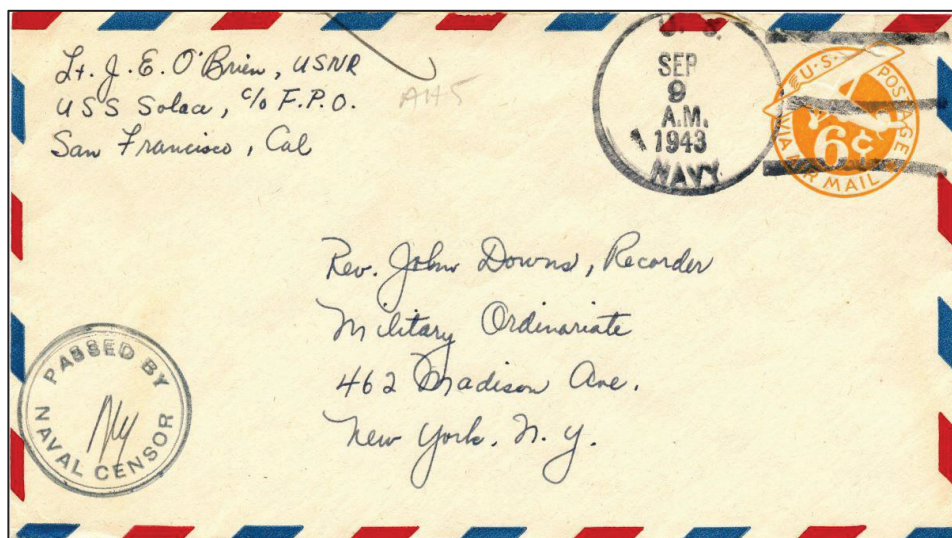 Lt. J. E. O'Brien, USNR
USS Solace, c/o F.P.O.
San Francisco, Cal
AH5
U. S.
SEP
9
A.M.
1943
NAVY
U·S· POSTAGE
6¢
VIA AIR MAIL
Rev. John Downs, Recorder
Military Ordinariate
462 Madison Ave.
New York. N. Y.
PASSED BY
NAVAL CENSOR